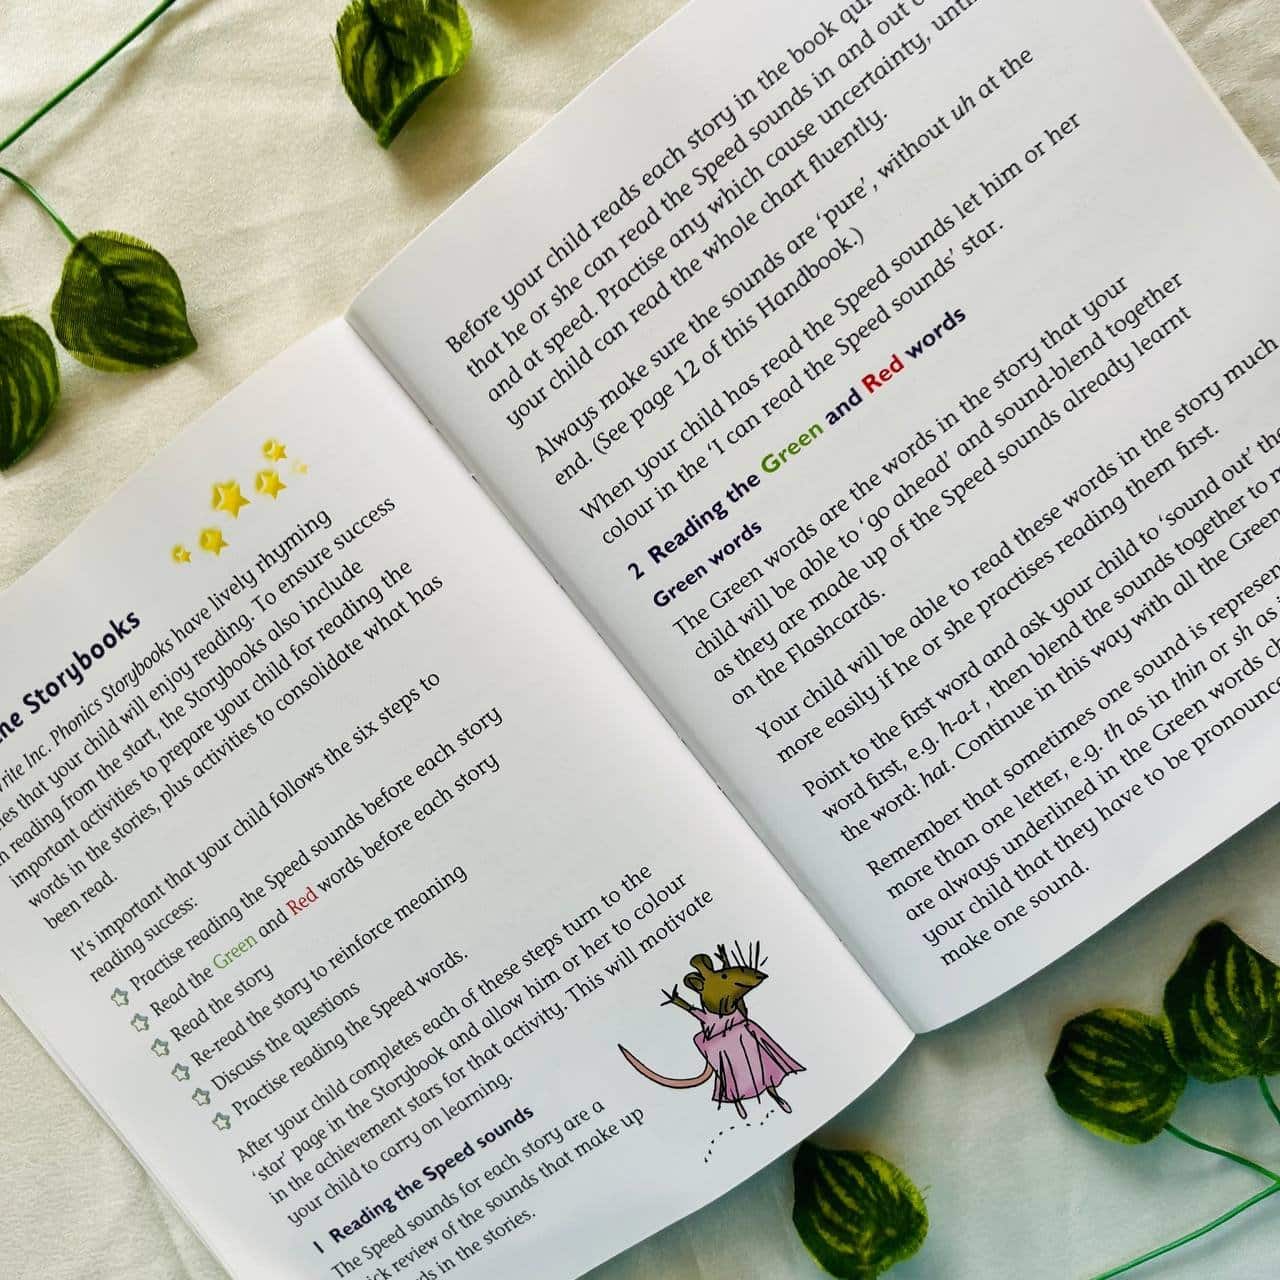 the Storybooks
Write Inc. Phonics Storybooks have lively rhyming
that your child will enjoy reading. To ensure success
reading from the start, the Storybooks also include
important activities to prepare your child for reading the
words in the stories, plus activities to consolidate what has
been read.
It's important that your child follows the six steps to
reading success:
Practise reading the Speed sounds before each story
Read the Green and Red words before each story
Read the story
Re-read the story to reinforce meaning
Discuss the questions
Practise reading the Speed words.
After your child completes each of these steps turn to the
'star' page in the Storybook and allow him or her to colour
in the achievement stars for that activity. This will motivate
your child to carry on learning.
1 Reading the Speed sounds
The Speed sounds for each story are a
review of the sounds that make up
in the stories.
Before your child reads each story in the book
that he or she can read the Speed sounds in and out
and at speed. Practise any which cause uncertainty, until
your child can read the whole chart fluently.
Always make sure the sounds are 'pure', without uh at the
end. (See page 12 of this Handbook.)
When your child has read the Speed sounds let him or her
colour in the 'I can read the Speed sounds' star.
2 Reading the Green and Red words
Green words
The Green words are the words in the story that your
child will be able to 'go ahead' and sound-blend together
as they are made up of the Speed sounds already learnt
on the Flashcards.
Your child will be able to read these words in the story much
more easily if he or she practises reading them first.
Point to the first word and ask your child to 'sound out' the
word first, e.g. h-a-t, then blend the sounds together to
the word: hat. Continue in this way with all the Green
Remember that sometimes one sound is
more than one letter, e.g. th as in thin or sh as
are always underlined in the Green words
your child that they have to be
make one sound.